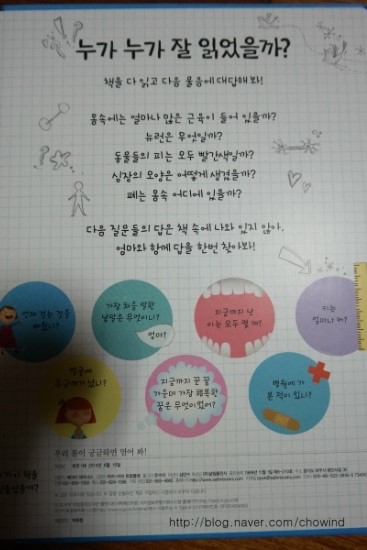 누가 누가 잘 읽었을까?
책을 다 읽고 다음 물음에 대답해 봐!
몸속에는 얼마나 많은 근육이 들어 있을까?
뉴런은 무엇일까?
동물들의 피는 모두 빨간색일까?
심장의 모양은 어떻게 생겼을까?
폐는 몸속 어디에 있을까?
다음 질문들의 답은 책 속에 나와 있지 않아.
엄마와 함께 답을 한번 찾아봐!
언제 걷는 것을
배웠니?
가장 처음 말한
낱말은 무엇이니?
엄마?
지금까지 난
이는 모두 몇 개?
키는
얼마나 돼?
얼굴에
주근깨가 났니?
지금까지 꾼 꿈
가운데 가장 행복한
꿈은 무엇이었어?
병원에 가
본 적이 있니?
우리 몸이 궁금하면 열어 봐!
http://blog.naver.com/chowind